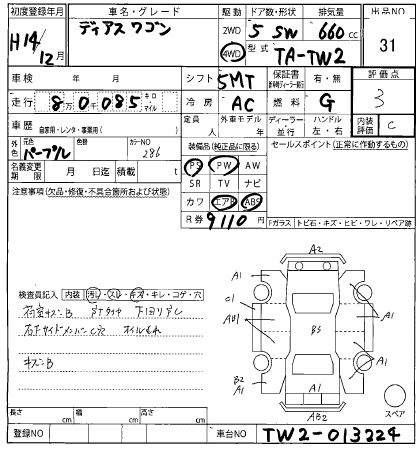 初度登録年月 車名・グレード 駆動 ドア数・形状 排気量 出品NO
H14/12月 ディアス ワゴン 2WD 4WD 5 SW 660cc 31
型式 TA-TW2
車検 年 月 シフト 5MT 保証書 有・無 評価点
走行 8万0千085 キロ・マイル 冷房 AC 燃料 G 3
車歴 自家用・レンタ・事業用( ) 定員 人 外車モデル 年 ディーラー・並行 ハンドル 左・右 内装評価 C
外色 元色 パープル 色替 カラーNO 286 装備品(純正品に限る) セールスポイント(正常に作動するもの)
名義変更期限 月 日迄 積載 t PS PW AW
注意事項(欠品・修復・不具合箇所および状態) SR TV ナビ
カワ エアB ABS
R券 9110円
Fガラス トビ石・キズ・ヒビ・ワレ・リペア跡
A2
A1 A1
検査員記入 内装 汚レ・スレ・キズ・キレ・コゲ・穴 C1 A1
AU1 BS
右下サイドメンバーC穴 オイルもれ
A1
キズ凹B B2 A1 A1
AB2 スペア
長さ cm 幅 cm 高さ cm
登録NO 車台NO TW2-013224